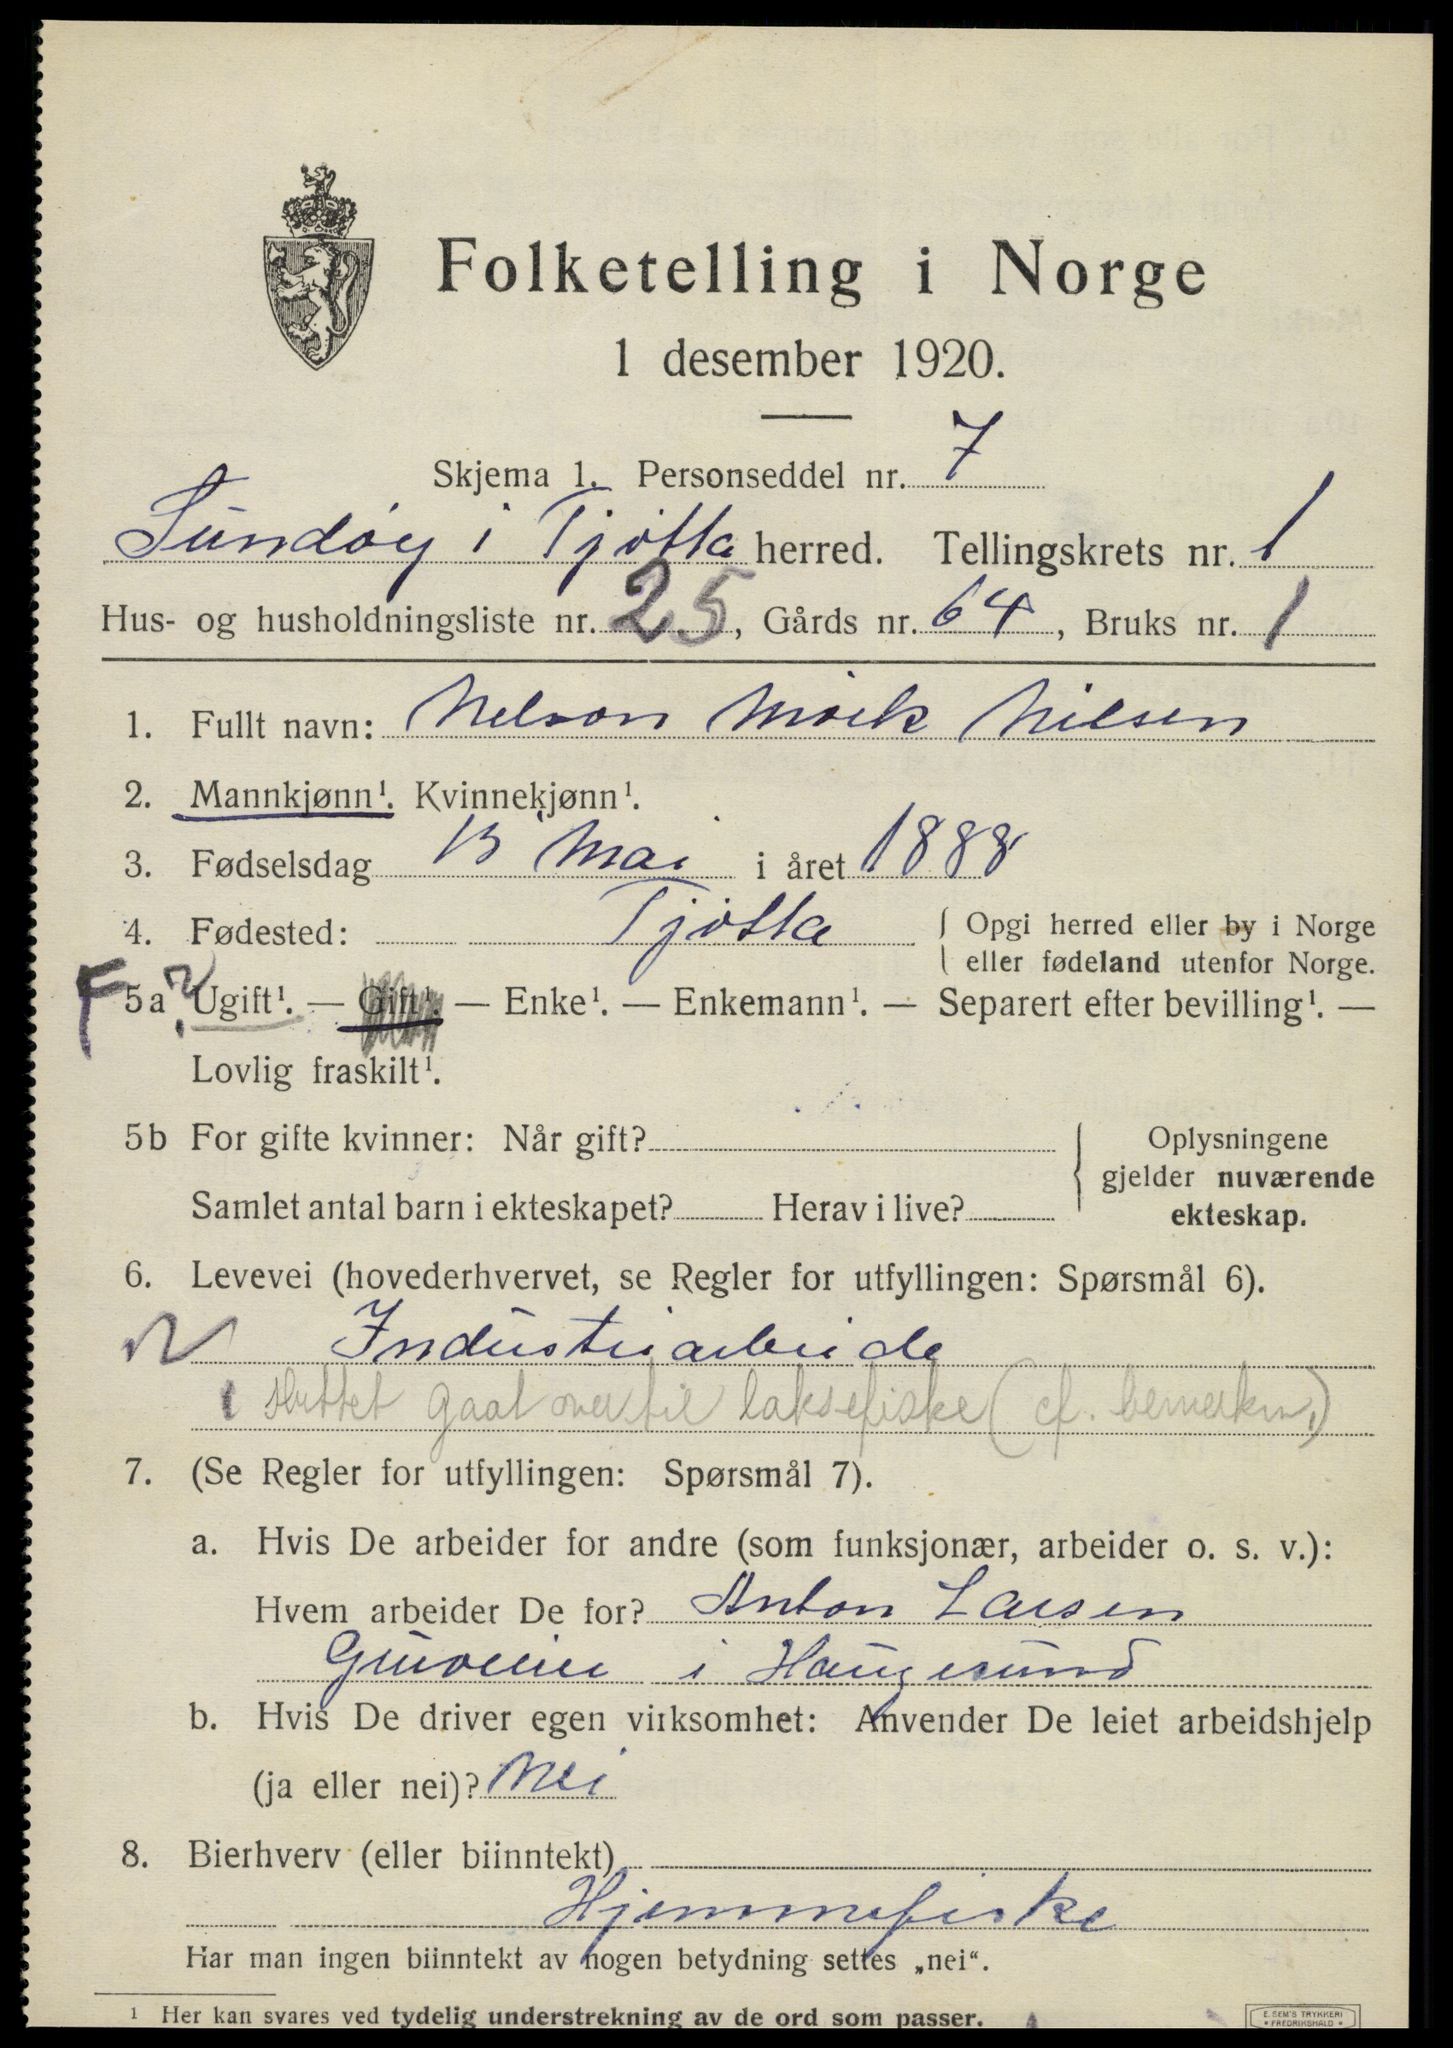 Folketelling i Norge
1 desember 1920.
Skjema 1. Personseddel nr. 7
Sundøy i Tjøtta herred. Tellingskrets nr. 1
Hus- og husholdningsliste nr. 25, Gårds nr. 64, Bruks nr. 1
1. Fullt navn: Nelson Mörk Nilsen
2. Mannkjønn¹. Kvinnekjønn¹.
3. Fødselsdag 13 Mai i året 1888
4. Fødested: Tjøtta { Opgi herred eller by i Norge
eller fødeland utenfor Norge.
F 5a ? Ugift¹. — Gift¹. — Enke¹. — Enkemann¹. — Separert efter bevilling¹. —
Lovlig fraskilt¹.
5b For gifte kvinner: Når gift?
Samlet antal barn i ekteskapet? Herav i live?
Oplysningene
gjelder nuværende
ekteskap.
6. Levevei (hovederhvervet, se Regler for utfyllingen: Spørsmål 6).
Industriarbeide
sluttet gaat over til laksefiske (cf. bemerkn.)
7. (Se Regler for utfyllingen: Spørsmål 7).
a. Hvis De arbeider for andre (som funksjonær, arbeider o. s. v.):
Hvem arbeider De for? Anton Larsen
Gruveeier i Haugesund
b. Hvis De driver egen virksomhet: Anvender De leiet arbeidshjelp
(ja eller nei)? Nei
8. Bierhverv (eller biinntekt)
Hjemmefiske
Har man ingen biinntekt av nogen betydning settes „nei“.
¹ Her kan svares ved tydelig understrekning av de ord som passer.
E. SEM'S TRYKKERI
FREDRIKSHALD